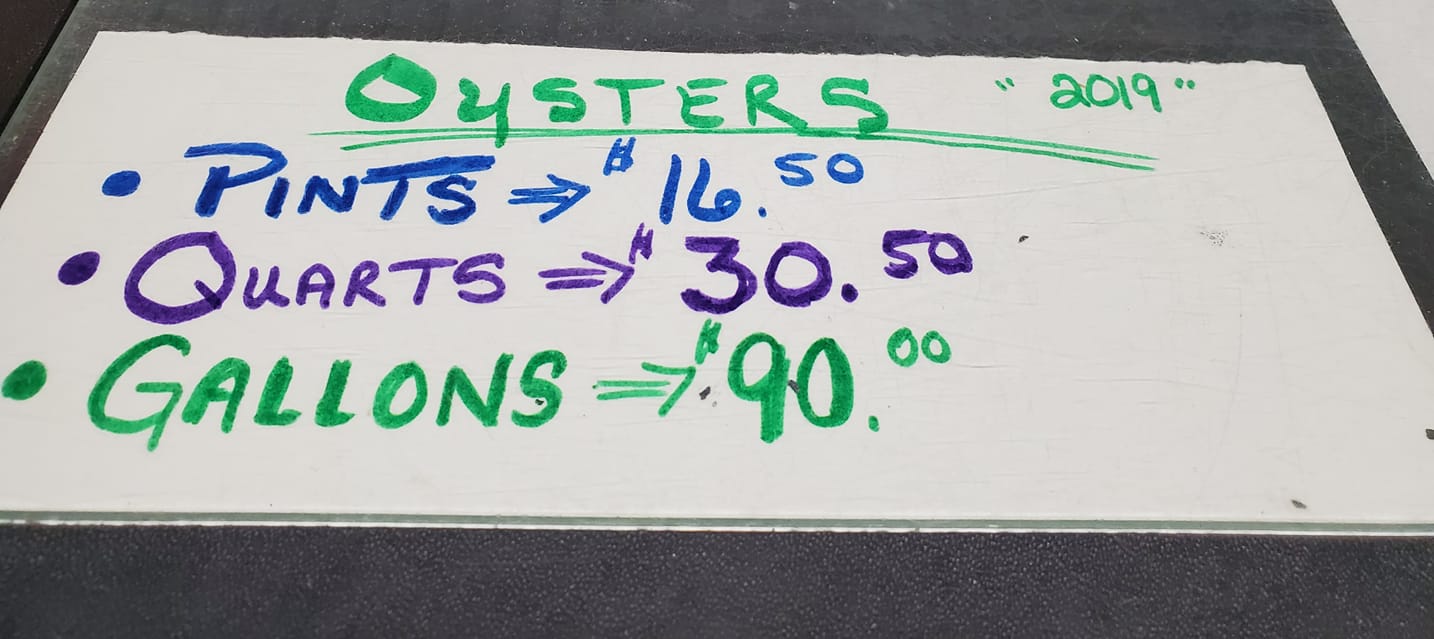 OYSTERS "2019"
• PINTS ⇒ $16.50
• QUARTS ⇒ $30.50
• GALLONS ⇒ $90.00